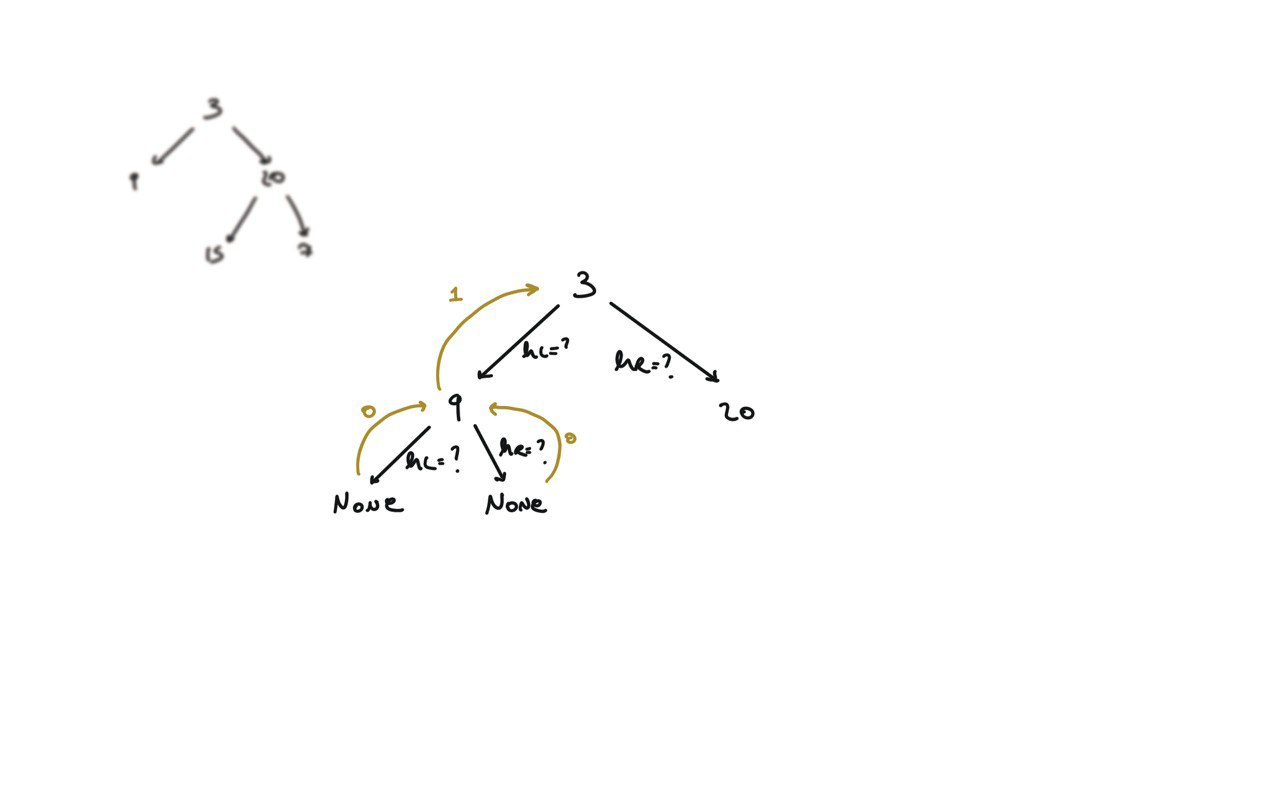 3
9
20
15
7
3
1
hL=?
hR=?
9
20
0
0
hL=?
hR=?
None
None